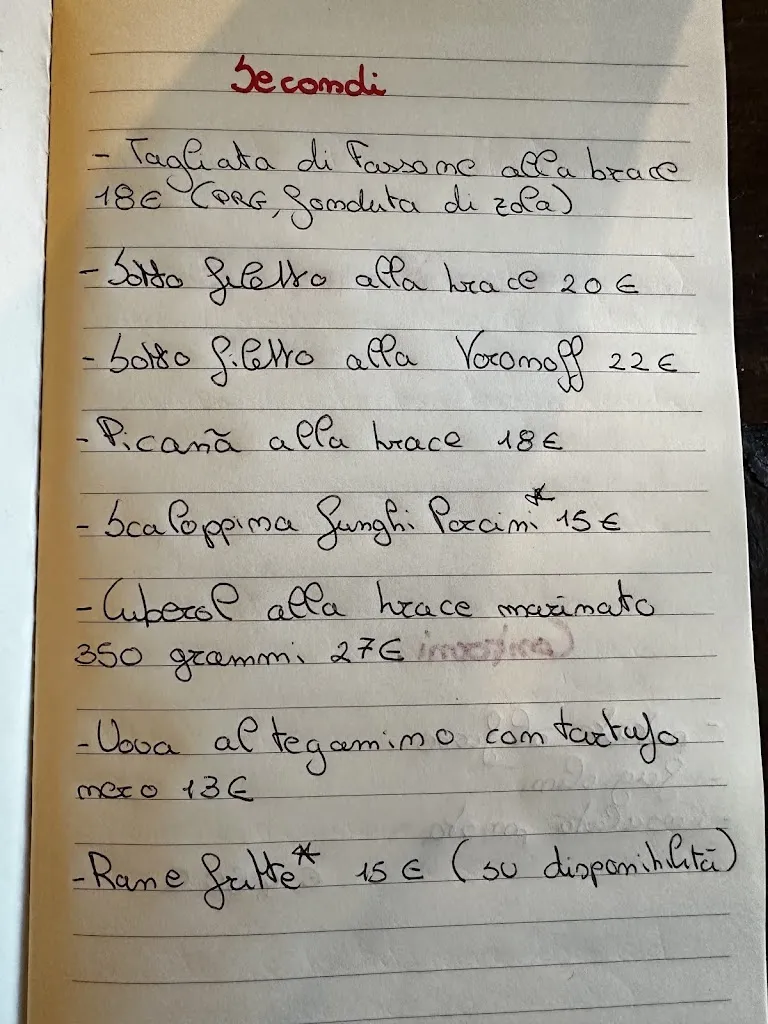 Secondi
- Tagliata di Fassone alla brace
18€ (PRG, fonduta di zola)
- Sotto filetto alla brace 20 €
- Sotto filetto alla Voronoff 22 €
- Picanã alla brace 18 €
- Scaloppina funghi Porcini* 15 €
- Cuberol alla brace marinato
350 grammi 27€
- Uova al tegamino con tartufo
nero 13€
- Rane fritte* 15 € (su disponibilità)
Contorni